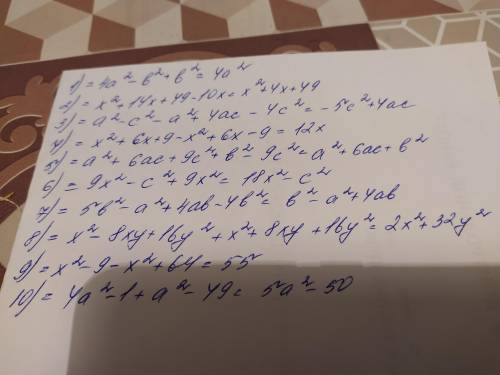 1) = 4a² - b² + b² = 4a²
2) = x² + 14x + 49 - 10x = x² + 4x + 49
3) = a² - c² - a² + 4ac - 4c² = -5c² + 4ac
4) = x² + 6x + 9 - x² + 6x - 9 = 12x
5) = a² + 6ac + 9c² + b² - 9c² = a² + 6ac + b²
6) = 9x² - c² + 9x² = 18x² - c²
7) = 5b² - a² + 4ab - 4b² = b² - a² + 4ab
8) = x² - 8xy + 16y² + x² + 8xy + 16y² = 2x² + 32y²
9) = x² - 9 - x² + 64 = 55
10) = 4a² - 1 + a² - 49 = 5a² - 50